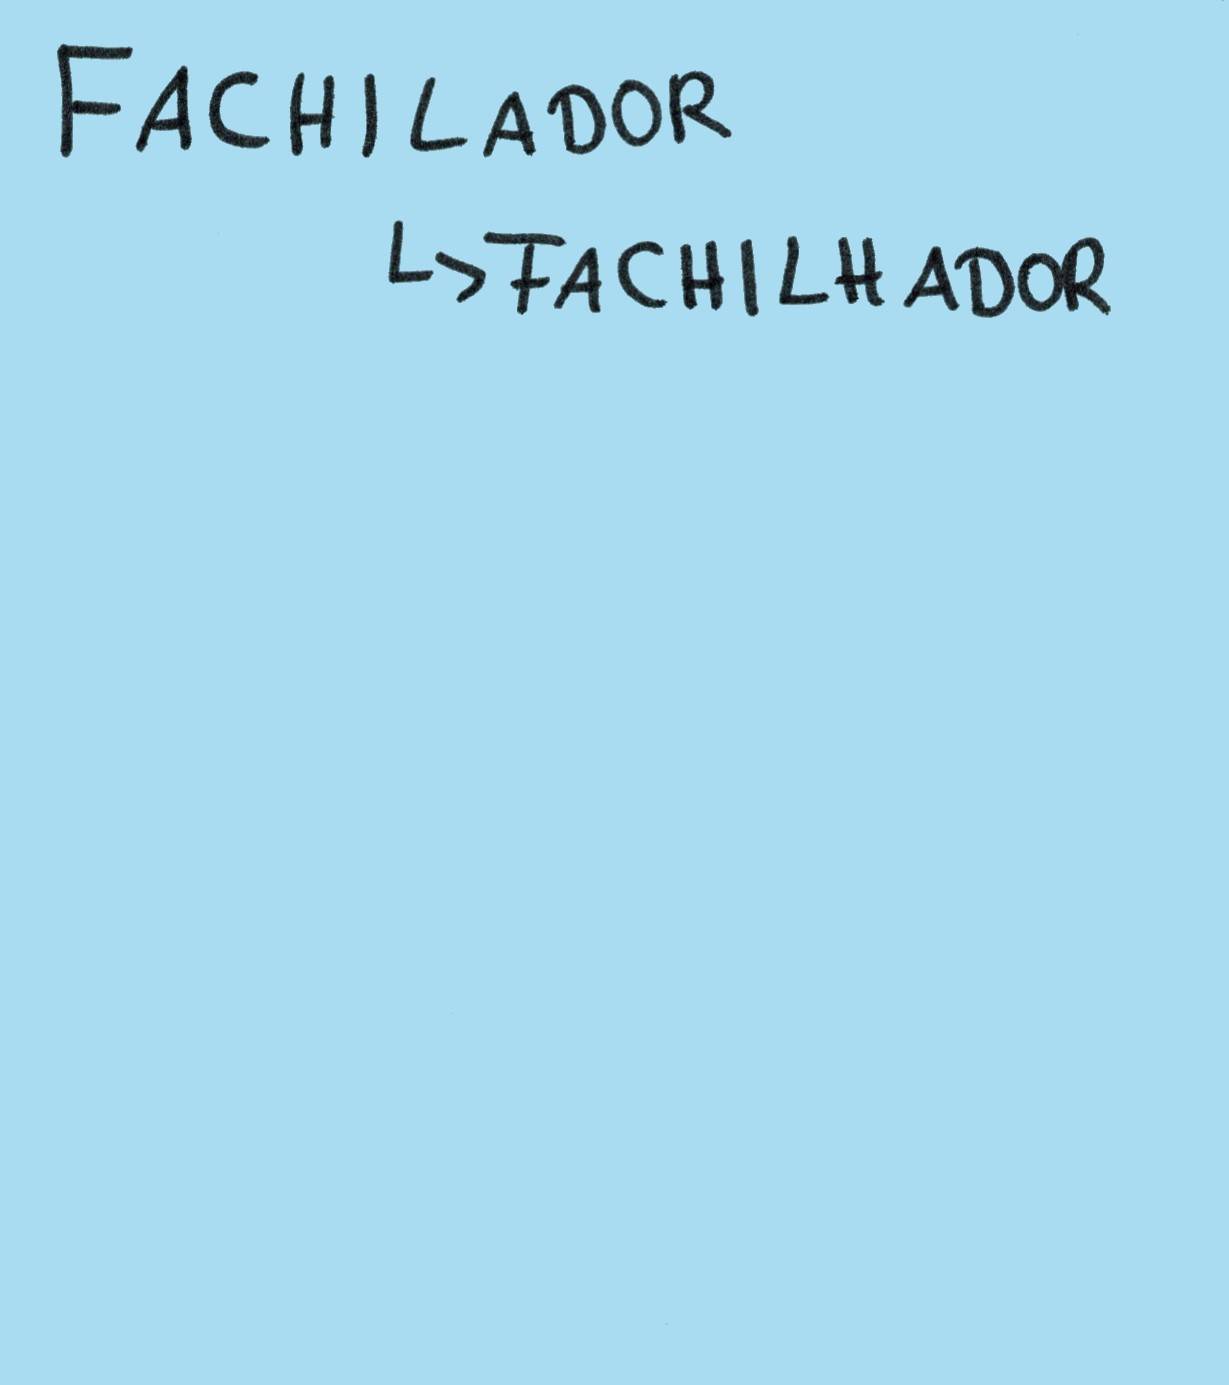 FACHILADOR
↳ FACHILHADOR